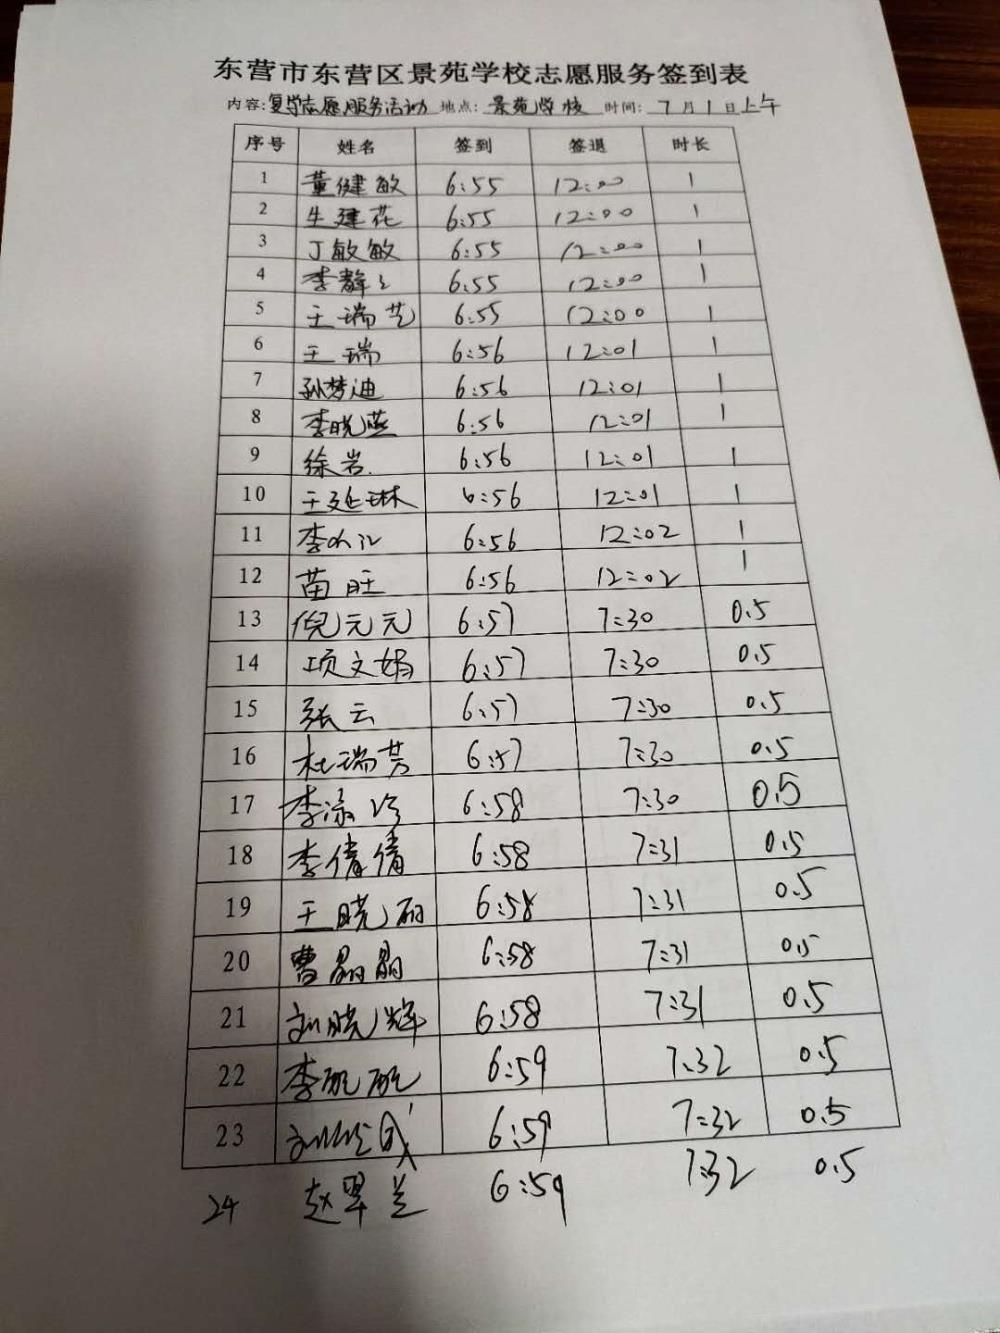 东营市东营区景苑学校志愿服务签到表
内容:复学志愿服务活动 地点:景苑学校 时间:7月1日上午
序号 姓名 签到 签退 时长
1 董健敏 6:55 12:00 1
2 生建花 6:55 12:00 1
3 丁敏敏 6:55 12:00 1
4 李静 6:55 12:00 1
5 王瑞芝 6:55 12:00 1
6 王瑞 6:56 12:01 1
7 孙梦迪 6:56 12:01 1
8 李晓燕 6:56 12:01 1
9 徐岩 6:56 12:01 1
10 王延琳 6:56 12:01 1
11 李 6:56 12:02 1
12 苗旺 6:56 12:02 1
13 倪元元 6:57 7:30 0.5
14 项文娟 6:57 7:30 0.5
15 张云 6:57 7:30 0.5
16 杜瑞芳 6:57 7:30 0.5
17 李 6:58 7:30 0.5
18 李倩倩 6:58 7:31 0.5
19 王晓丽 6:58 7:31 0.5
20 曹晶晶 6:58 7:31 0.5
21 刘晓辉 6:58 7:31 0.5
22 李 6:59 7:32 0.5
23 刘 6:59 7:32 0.5
24 赵翠兰 6:59 7:32 0.5